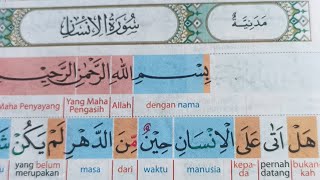 سُورَةُ الْإِنْسَانِ مَدَنِيَّةٌ
بِسْمِ اللّٰهِ الرَّحْمٰنِ الرَّحِيْمِ
Maha Penyayang Yang Maha Pengasih Allah dengan nama
هَلْ اَتٰى عَلَى الْاِنْسَانِ حِيْنٌ مِّنَ الدَّهْرِ لَمْ يَكُنْ
yang belum merupakan masa dari waktu manusia kepada pernah datang bukankah